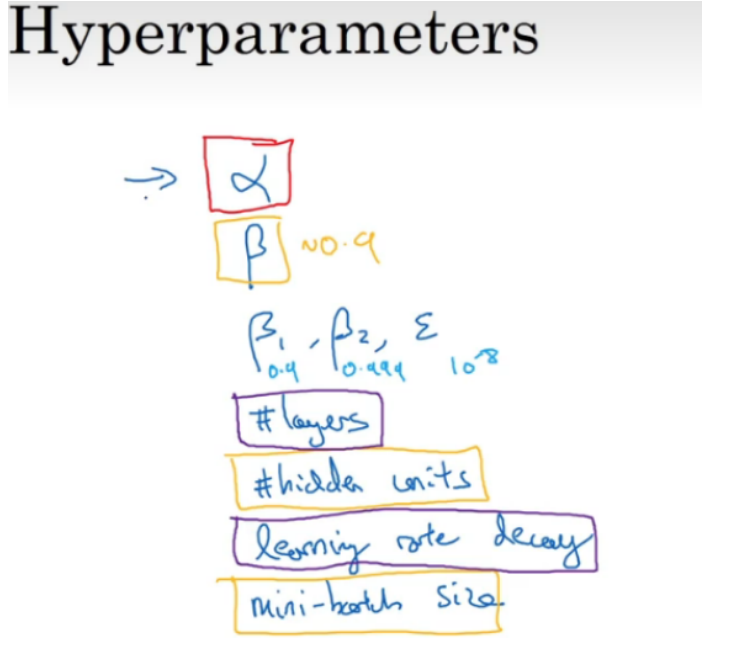 Hyperparameters
→ α
β ~0.9
β₁, β₂, ε
0.9 0.999 10⁻⁸
#layers
#hidden units
learning rate decay
mini-batch size